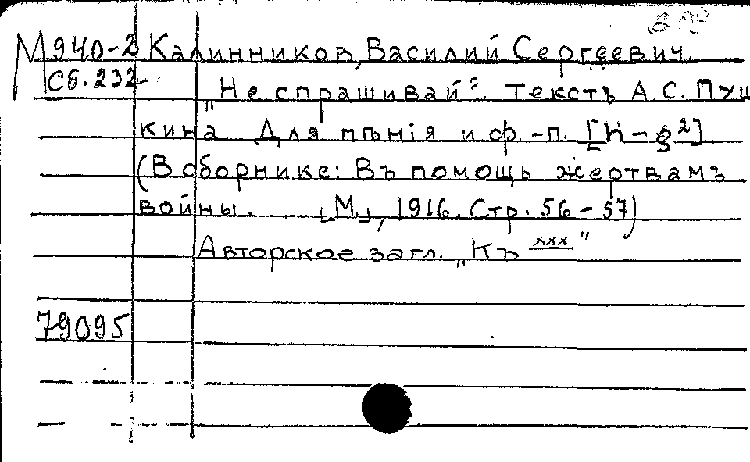 М 940-2 Калинников, Василий Сергеевич.
Сб. 232
„Не спрашивай". Текстъ А.С. Пуш
кина Для пѣнія и ф.-п. [h-g²]
(В сборнике: Въ помощь жертвамъ
войны. [М.], 1916. Стр. 56-57)
Авторское загл. „Къ ххх"
79095